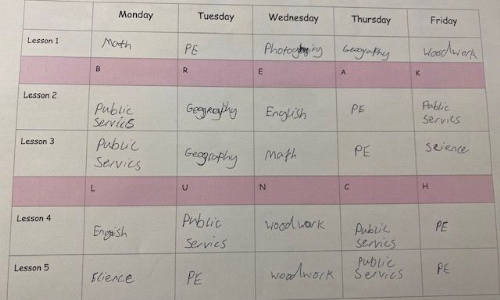 Monday Tuesday Wednesday Thursday Friday
Lesson 1 Math PE Geography Woodwork
B R E A K
Lesson 2 Public Servics Geography English PE Public Servics
Lesson 3 Public Servics Geography Math PE Science
L U N C H
Lesson 4 English Public Servics Woodwork Public Servics PE
Lesson 5 Science PE Woodwork Public Servics PE